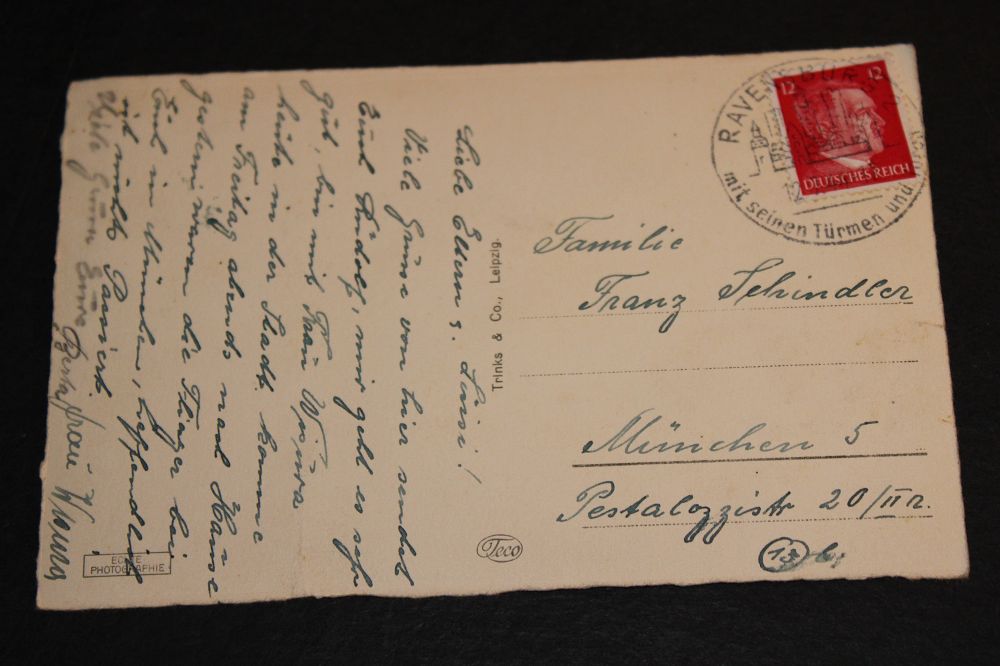 Liebe Eltern u. Lini!
Viele Grüsse von hier sendet
Euch Rudolf, mir geht es sehr
gut, bin mit Frau
heute in der Stadt. komme
am Freitag abends nach Hause.
gestern waren die Flieger bei
Euch in München, hoffendlich
ist nichts Passiert.
Viele Grüsse Eure
Frau
ECHTE
PHOTOGRAPHIE
Trinks & Co., Leipzig.
Teco
RAVENSBURG
mit seinen Türmen und
12 12
DEUTSCHES REICH
Familie
Franz Schindler
München 5
Pestalozzistr 20/II r.
13b